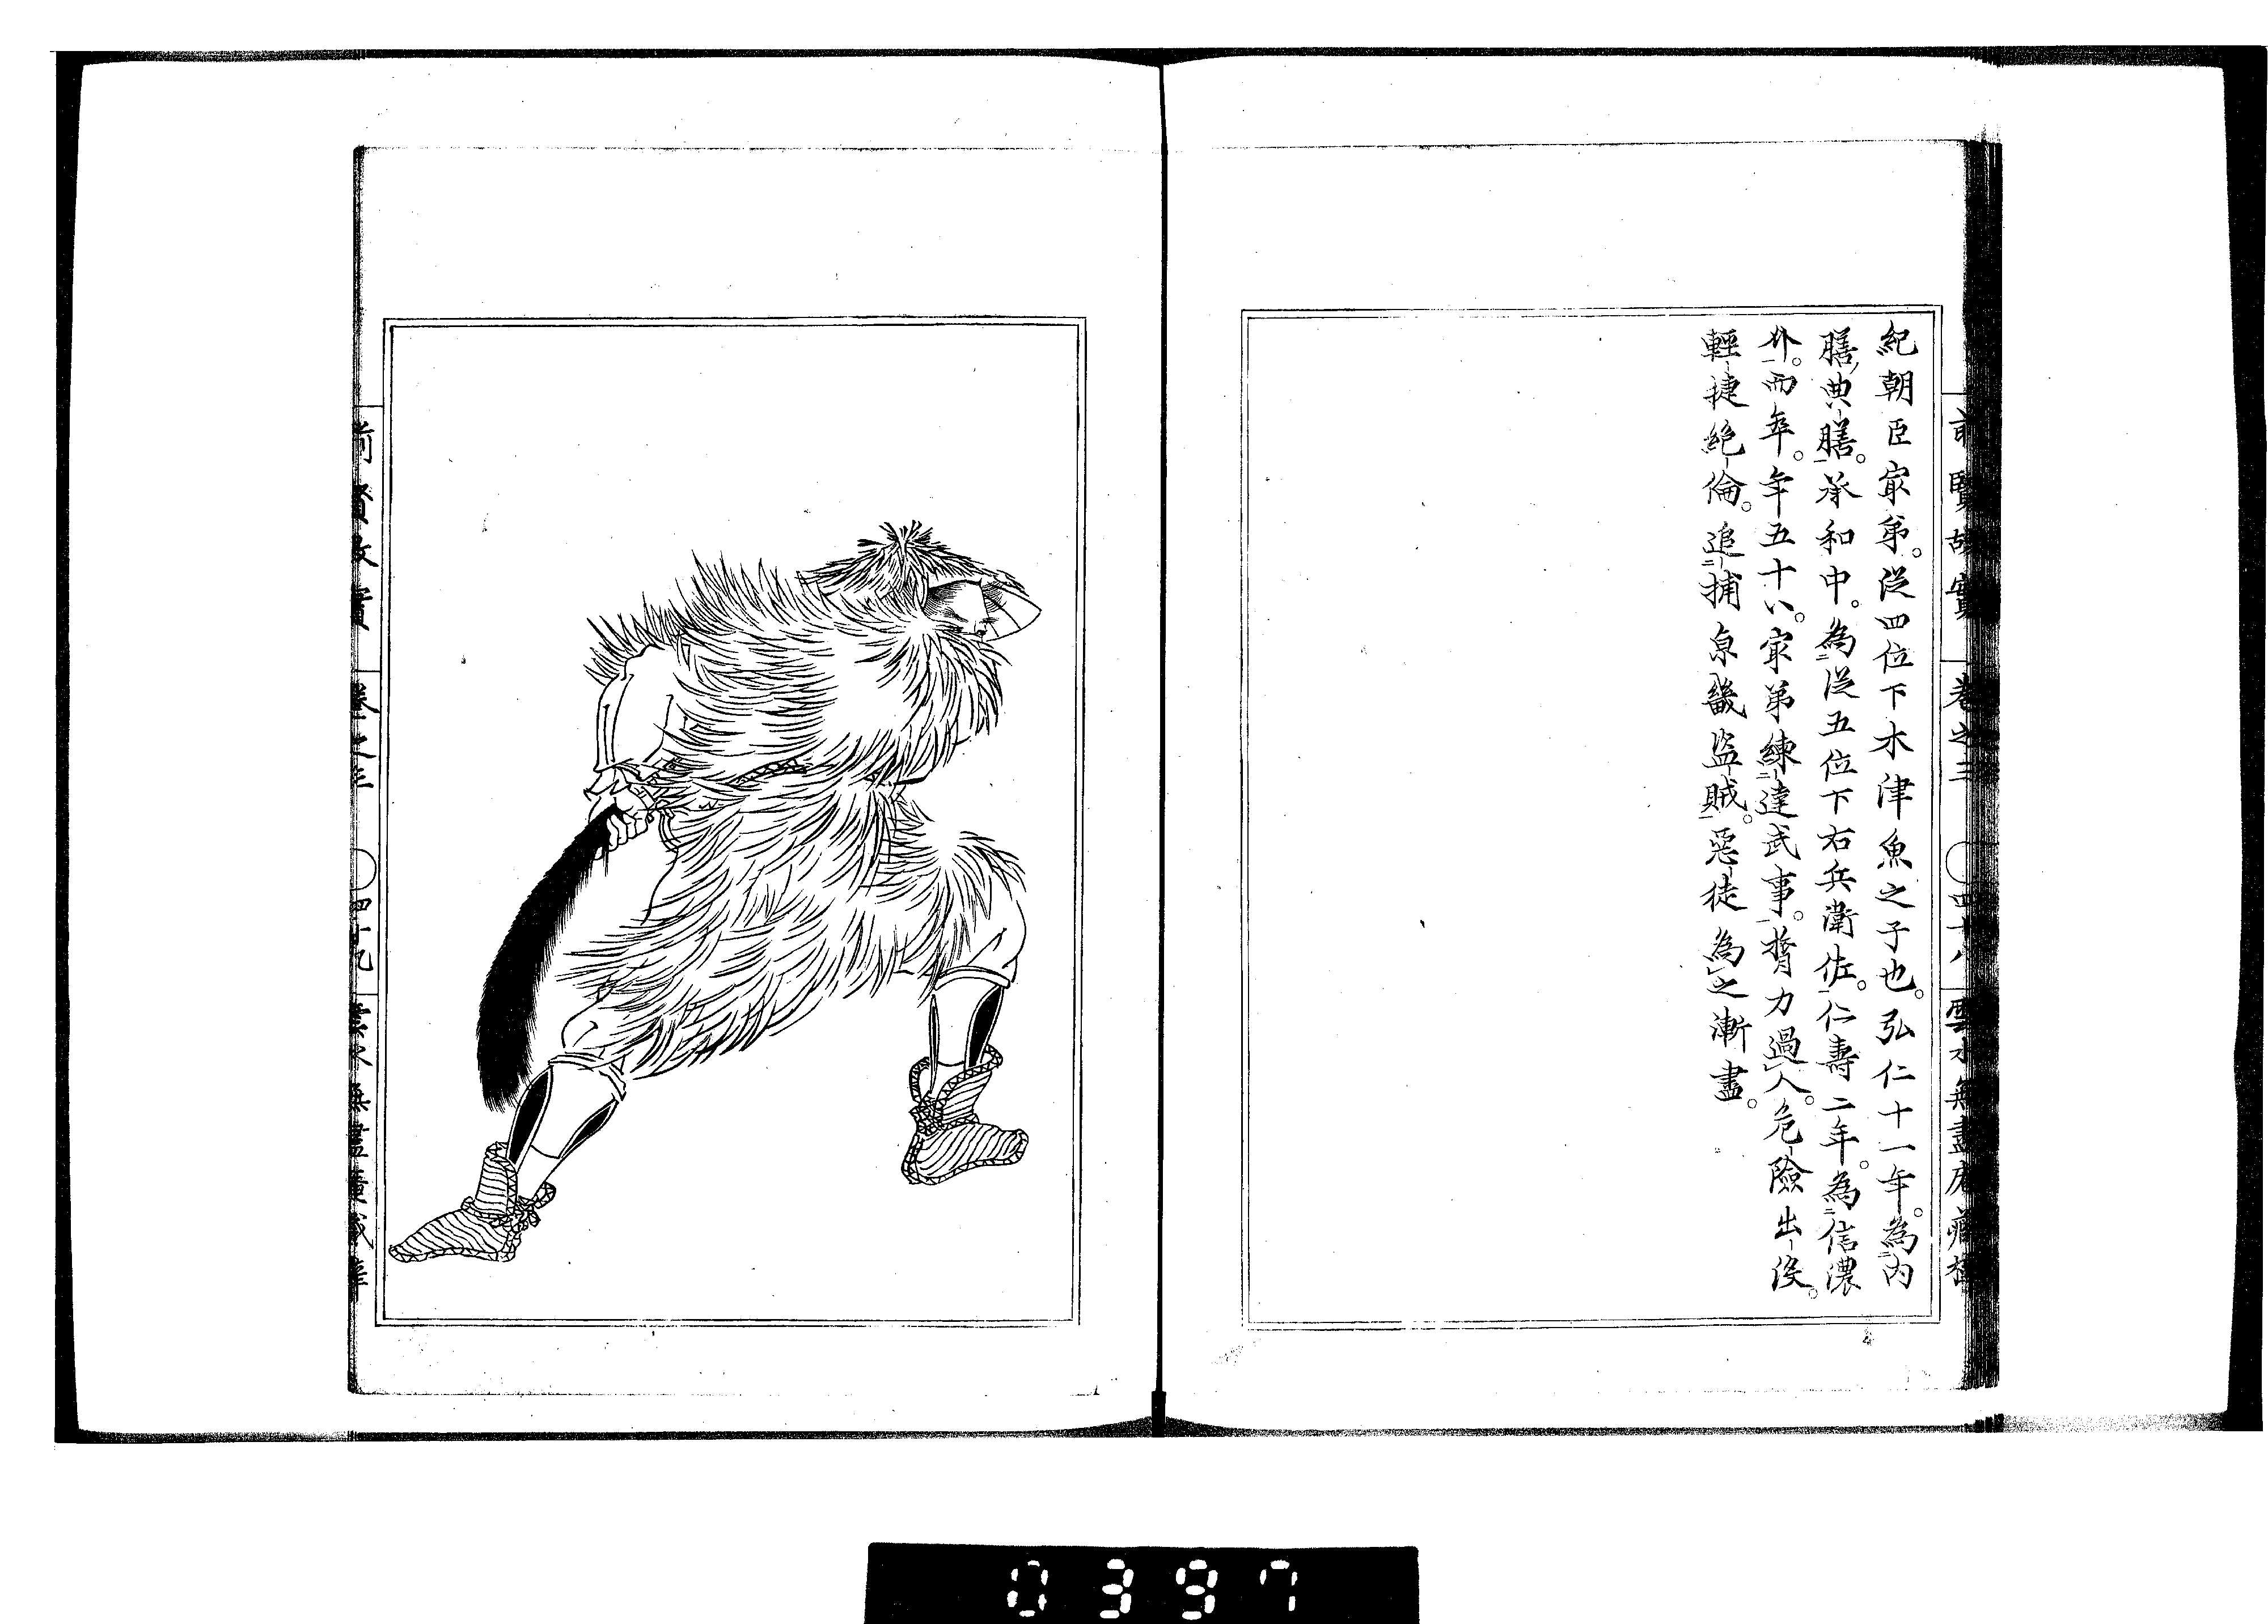 前賢故實 巻之三 〇四十八 雲水無盡庵藏
紀朝臣㝡弟。従四位下木津魚之子也。弘仁十一年。為二内
膳典膳一。承和中。為二従五位下右兵衛佐一。仁壽二年。為二信濃
介一。而卒。年五十八。㝡弟練二達武事一。膂力過レ人。危険出-俊。
輕-捷絶-倫。追二-捕京畿盗賊一。惡-徒為レ之漸盡。
前賢故實 巻之三 〇四十九 雲水無盡
0397